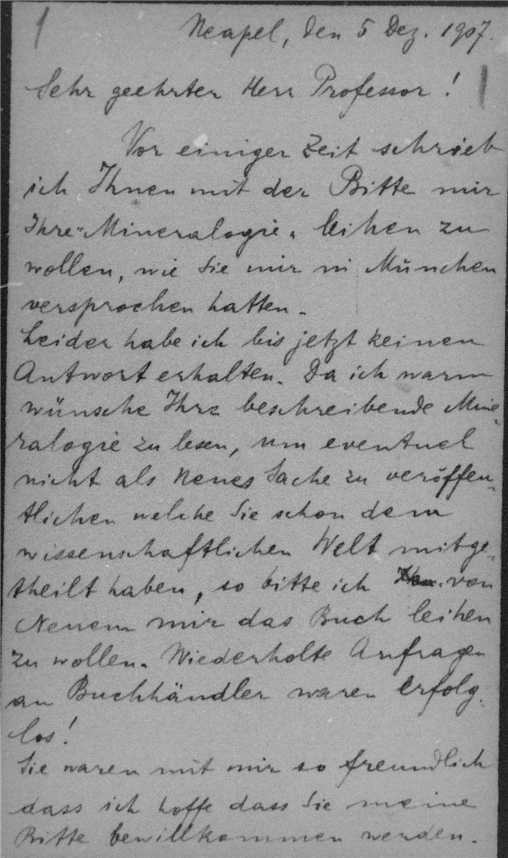 Neapel, den 5 Dez. 1907.
Sehr geehrter Herr Professor!
Vor einiger Zeit schrieb
ich Ihnen mit der Bitte mir
Ihre "Mineralogie" leihen zu
wollen, wie Sie mir in München
versprochen hatten.
Leider habe ich bis jetzt keinen
Antwort erhalten. Da ich warm
wünsche Ihre beschreibende Mine-
ralogie zu lesen, um eventuel
nicht als neues Sache zu veröffen-
tlichen welche Sie schon dem
wissenschaftlichen Welt mitge-
theilt haben, so bitte ich von
Neuem mir das Buch leihen
zu wollen. Wiederholte Anfragen
an Buchhändler waren erfolg-
los!
Sie waren mit mir so freundlich
dass ich hoffe dass Sie meine
Bitte bewillkommen werden.